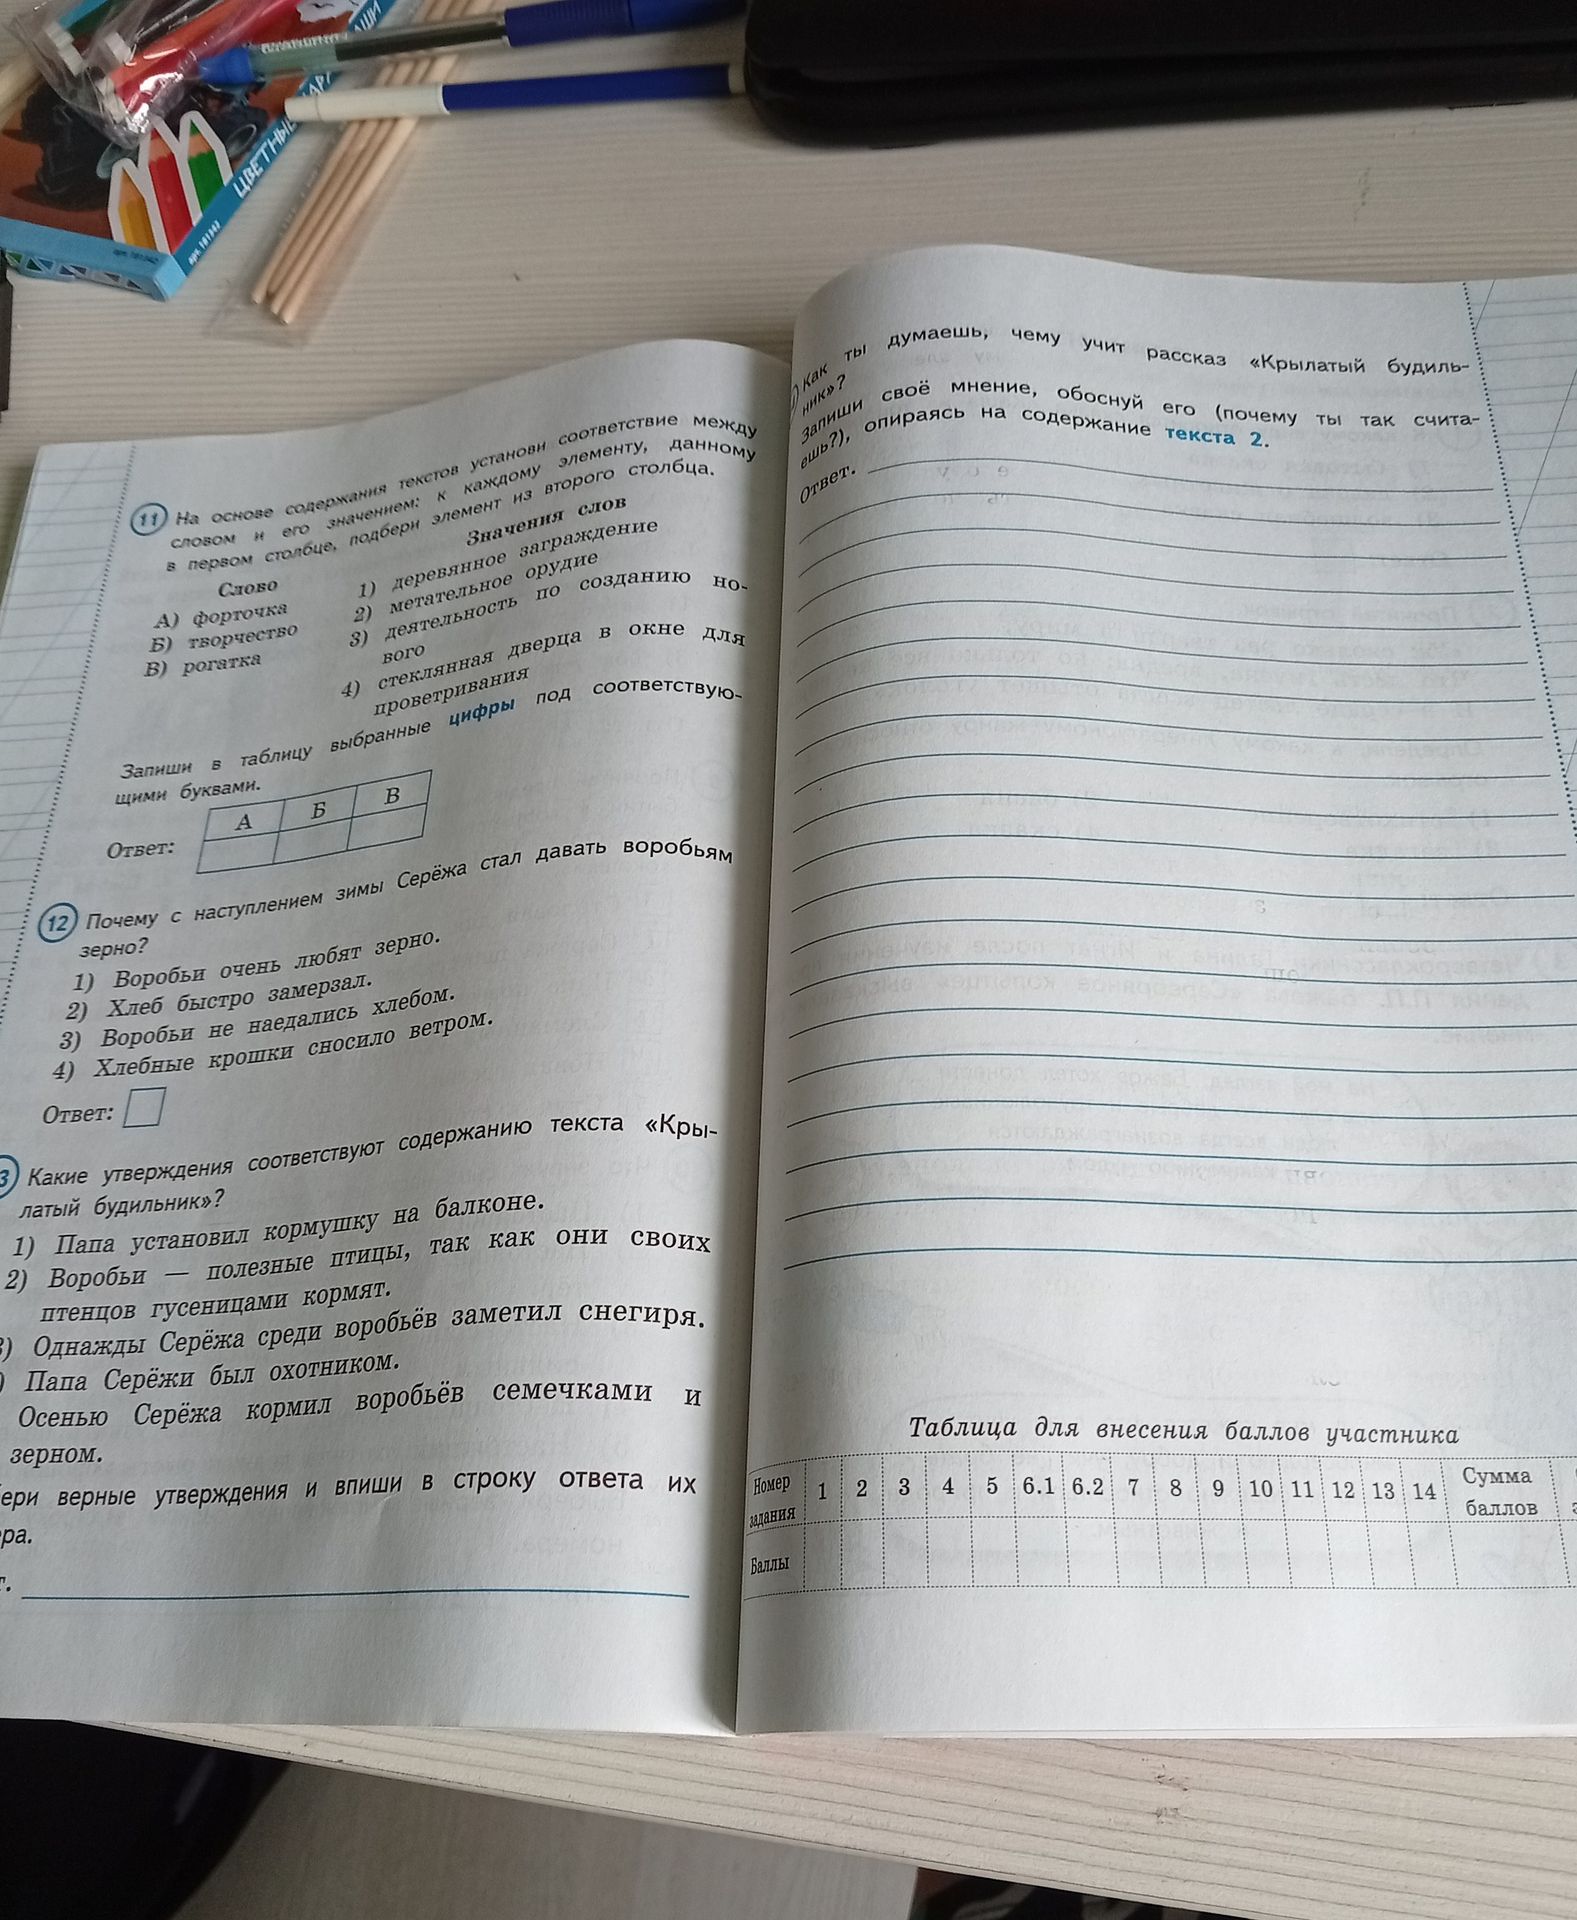 ЦВЕТНЫЕ
арт. 181343
11 На основе содержания текстов установи соответствие между
словом и его значением: к каждому элементу, данному
в первом столбце, подбери элемент из второго столбца.
Слово
А) форточка
Б) творчество
В) рогатка
Значения слов
1) деревянное заграждение
2) метательное орудие
3) деятельность по созданию но-
вого
4) стеклянная дверца в окне для
проветривания
Запиши в таблицу выбранные цифры под соответствую-
щими буквами.
Ответ:
А Б В
12 Почему с наступлением зимы Серёжа стал давать воробьям
зерно?
1) Воробьи очень любят зерно.
2) Хлеб быстро замерзал.
3) Воробьи не наедались хлебом.
4) Хлебные крошки сносило ветром.
Ответ:
3 Какие утверждения соответствуют содержанию текста «Кры-
латый будильник»?
1) Папа установил кормушку на балконе.
2) Воробьи — полезные птицы, так как они своих
птенцов гусеницами кормят.
3) Однажды Серёжа среди воробьёв заметил снегиря.
) Папа Серёжи был охотником.
Осенью Серёжа кормил воробьёв семечками и
зерном.
ери верные утверждения и впиши в строку ответа их
ера.
т.
Как ты думаешь, чему учит рассказ «Крылатый будиль-
ник»?
Запиши своё мнение, обоснуй его (почему ты так счита-
ешь?), опираясь на содержание текста 2.
Ответ.
Таблица для внесения баллов участника
Номер задания 1 2 3 4 5 6.1 6.2 7 8 9 10 11 12 13 14 Сумма баллов
Баллы